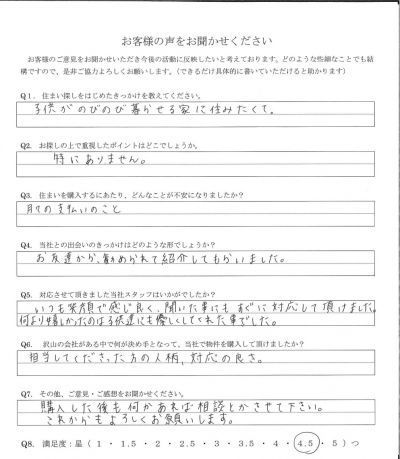 お客様の声をお聞かせください
お客様のご意見をお聞かせいただき今後の活動に反映したいと考えております。どのような些細なことでも結
構ですので、是非ご協力よろしくお願いします。（できるだけ具体的に書いていただけると助かります）
Q1. 住まい探しをはじめたきっかけを教えてください。
子供がのびのび暮らせる家に住みたくて。
Q2. お探しの上で重視したポイントはどこでしょうか。
特にありません。
Q3. 住まいを購入するにあたり、どんなことが不安になりましたか？
月々の支払いのこと
Q4. 当社との出会いのきっかけはどのような形でしょうか？
お友達から、勧められて紹介してもらいました。
Q5. 対応させて頂きました当社スタッフはいかがでしたか？
いつも笑顔で感じ良く、聞いた事にもすぐに対応して頂けました。
何より嬉しかったのは子供達にも優しくしてくれた事でした。
Q6. 沢山の会社がある中で何が決め手となって、当社で物件を購入して頂けましたか？
担当してくださった方の人柄、対応の良さ。
Q7. その他、ご意見・ご感想をお聞かせください。
購入した後も何かあれば相談とかさせて下さい。
これからもよろしくお願いします。
Q8. 満足度：星（1 ・ 1.5 ・ 2 ・ 2.5 ・ 3 ・ 3.5 ・ 4 ・ 4.5 ・ 5）つ